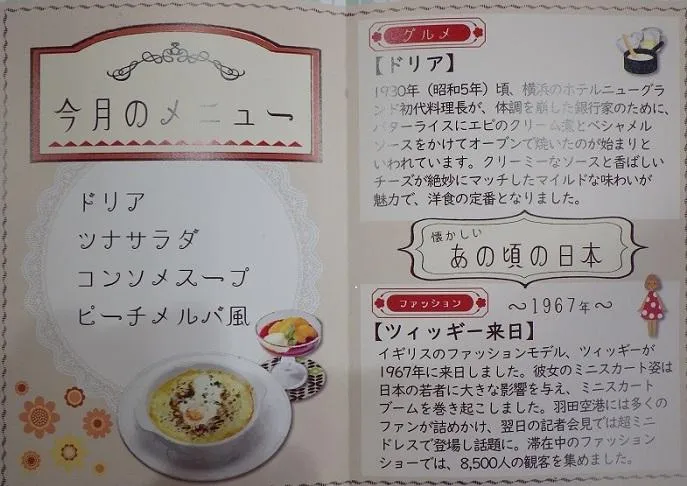 今月のメニュー
ドリア
ツナサラダ
コンソメスープ
ピーチメルバ風
グルメ
【ドリア】
1930年（昭和5年）頃、横浜のホテルニューグラ
ンド初代料理長が、体調を崩した銀行家のために、
バターライスにエビのクリーム煮とベシャメル
ソースをかけてオーブンで焼いたのが始まりと
いわれています。クリーミーなソースと香ばしい
チーズが絶妙にマッチしたマイルドな味わいが
魅力で、洋食の定番となりました。
懐かしい
あの頃の日本
ファッション
～1967年～
【ツィッギー来日】
イギリスのファッションモデル、ツィッギーが
1967年に来日しました。彼女のミニスカート姿は
日本の若者に大きな影響を与え、ミニスカート
ブームを巻き起こしました。羽田空港には多くの
ファンが詰めかけ、翌日の記者会見では超ミニ
ドレスで登場し話題に。滞在中のファッション
ショーでは、8,500人の観客を集めました。